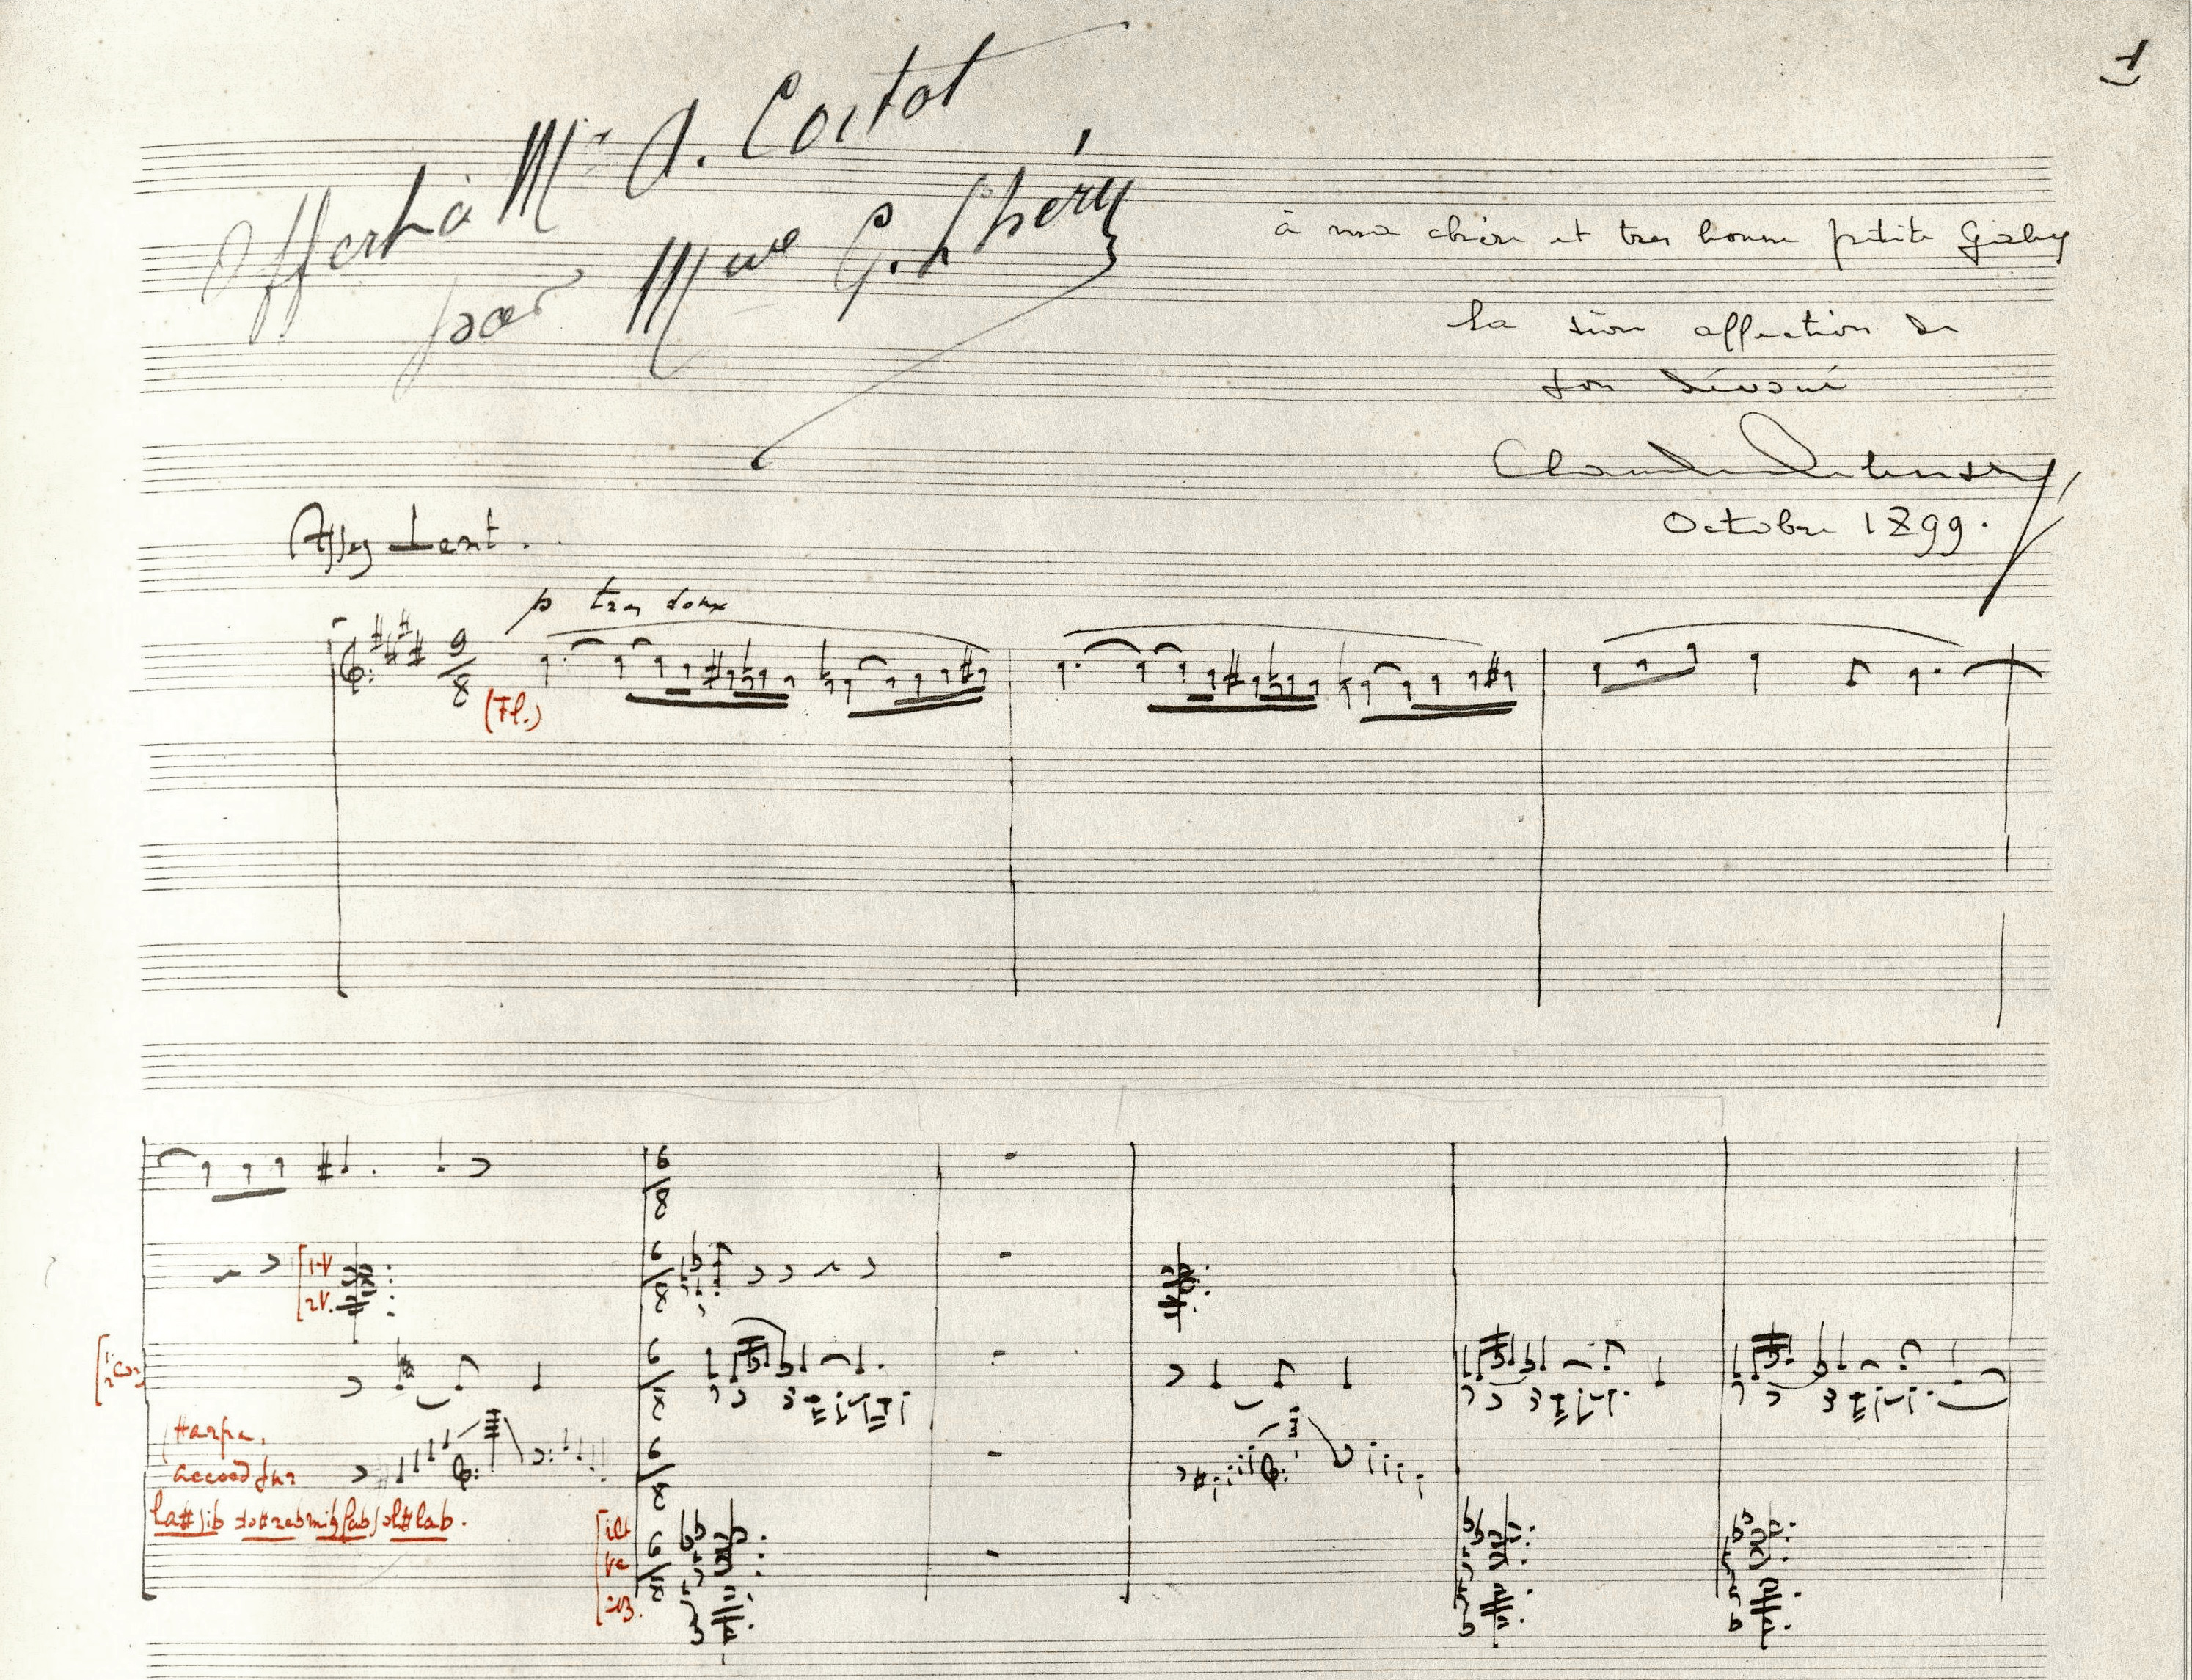 1
Offert à Mr A. Cortot
par Mme G. Lhéry
à ma chère et très bonne petite Gaby
la sûre affection de
son dévoué
Claude Debussy
Octobre 1899.
Assez Lent.
p très doux
9
8
(Fl.)
6 8
1.V
2V.
6 8
1 2 Cor
6 8
Harpe.
accord sur
6 8
la# sib do# réb mi♮ fab sol# lab.
6 8